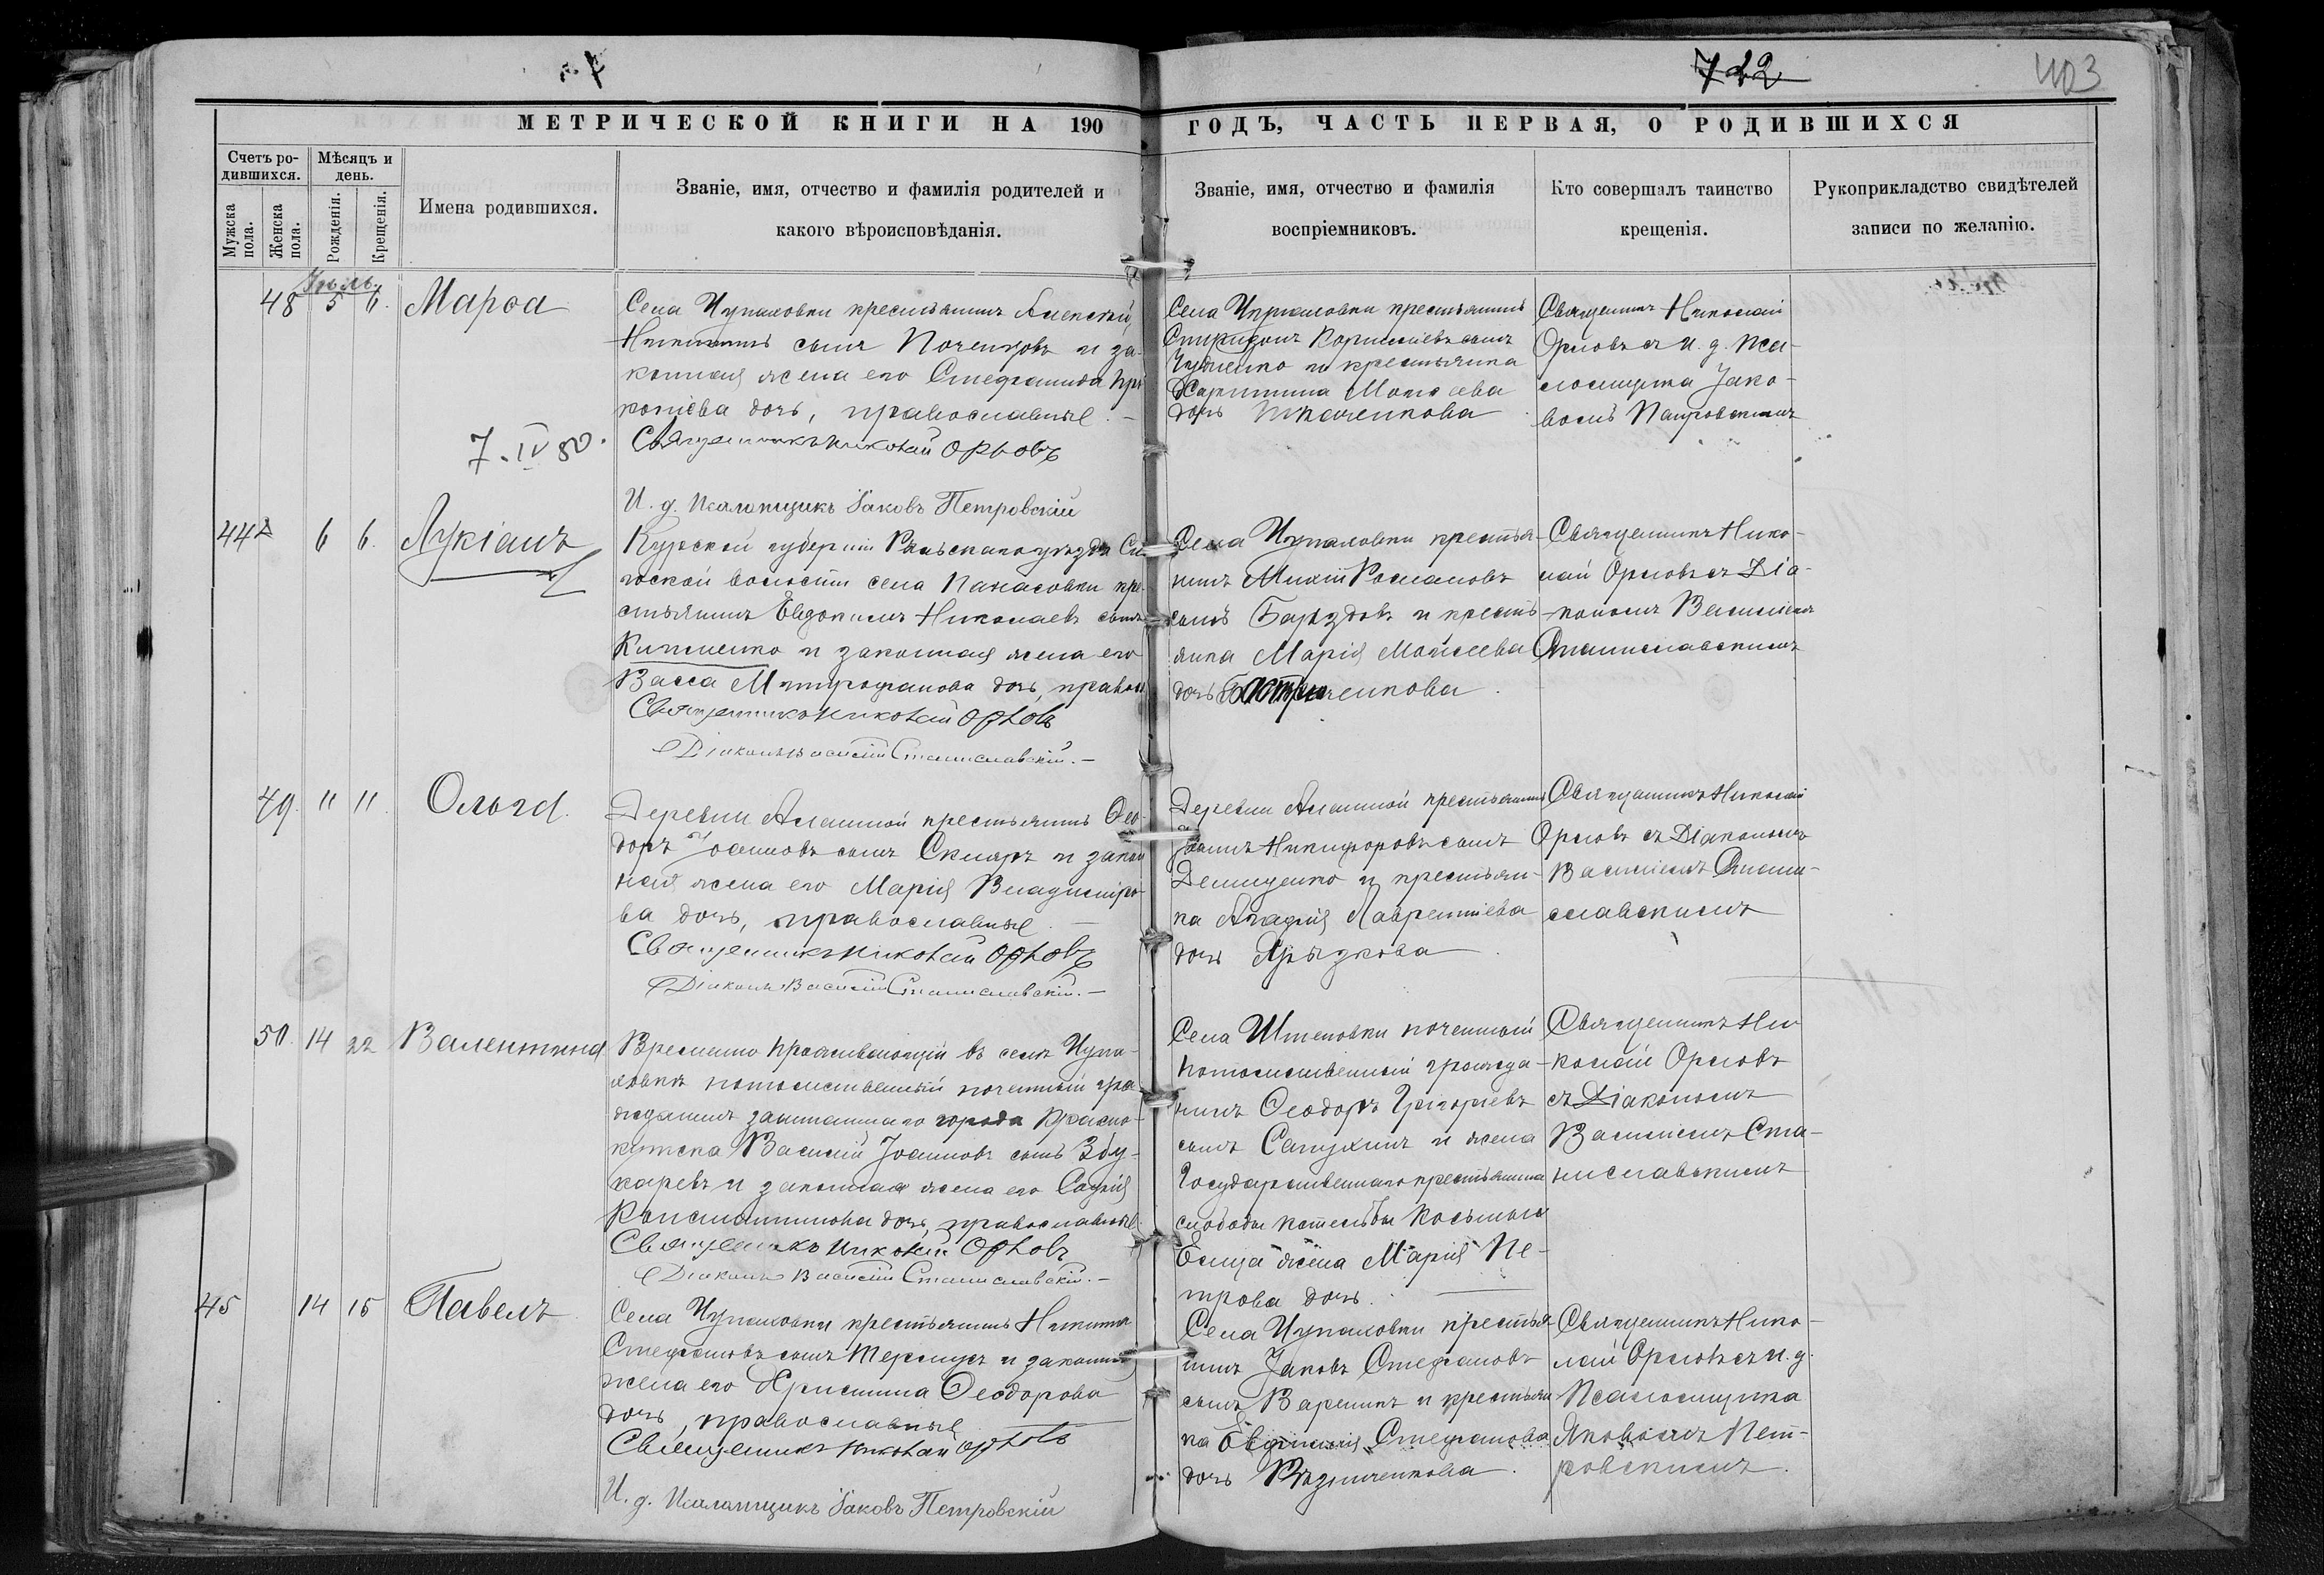 742
403
МЕТРИЧЕСКОЙ КНИГИ НА 190
ГОДЪ, ЧАСТЬ ПЕРВАЯ, О РОДИВШИХСЯ
Счетъ ро-
дившихся.
Мужска
пола.
Женска
пола.
Мѣсяцъ и
день.
Рожденія.
Крещенія.
Имена родившихся.
Званіе, имя, отчество и фамилія родителей и
какого вѣроисповѣданія.
Званіе, имя, отчество и фамилія
воспріемниковъ.
Кто совершалъ таинство
крещенія.
Рукоприкладство свидѣтелей
записи по желанію.
48 5 6. Марѳа
Села Чупаховки крестьянинъ Алексѣй
Никитинъ сынъ и за-
конная жена его Стефанида Про
копіева дочь, православные. —
Священникъ Николай Орловъ
И. д. Псаломщикъ Іаковъ Петровскій
7. IV 80.
Села Чупаховки крестьянинъ
Спиридонъ сынъ
и крестьянка
Харитина
дочь
Священникъ Николай
Орловъ съ и. д. пса-
ломщика Іако-
вомъ Петровскимъ
44 6 6. Лукіанъ
Курской губерніи Рыльскаго уѣзда Сн
воской волости села Панасовки кре-
стьянинъ Евдокимъ Николаевъ сынъ
и законная жена его
Васса Митрофанова дочь, правосл
Священникъ Николай Орловъ
Діаконъ Василій Станиславскій. —
Села Чупаховки крестья-
нинъ Романовъ
сынъ и кресть-
янка Марія Моисеева
дочь
Священникъ Нико-
лай Орловъ съ Діа-
кономъ Василіемъ
Станиславскимъ
49. 11 11. Ольга.
Деревни Алешной крестьянинъ Ѳео-
доръ Іоанновъ сынъ Скляръ и закон
ная жена его Марія Владиміро-
ва дочь, православные. —
Священникъ Николай Орловъ
Діаконъ Василій Станиславскій. —
Деревни Алешной крестьянинъ
Іоаннъ Никифоровъ сынъ
Демиденко и крестьян-
ка Агафія Лаврентіева
дочь
Священникъ Николай
Орловъ съ Діакономъ
Василіемъ Стани-
славскимъ
50. 14 22 Валентина
Временно проживающій въ селѣ Чупа-
ховкѣ потомственный почетный гра-
жданинъ заштатнаго города Красно-
кутска Василій Іоанновъ сынъ
и законная жена его Софія
Константинова дочь, православные.
Священникъ Николай Орловъ
Діаконъ Василій Станиславскій. —
Села Штеповки почетный
потомственный гражда-
нинъ Ѳеодоръ Григорьевъ
сынъ и жена
Государственнаго крестьянина
слободы Котельвы Косьмы
жена Марія Пе-
трова дочь.
Священникъ Ни-
колай Орловъ
съ Діакономъ
Василіемъ Ста-
ниславскимъ
45 14 15 Павелъ
Села Чупаховки крестьянинъ Никита
Стефановъ сынъ и законная
жена его Христина Ѳеодорова
дочь, православные
Священникъ Николай Орловъ
И. д. Псаломщикъ Іаковъ Петровскій
Села Чупаховки крестья-
нинъ Іаковъ Стефановъ
сынъ Вареникъ и крестьян
ка Стефанова
дочь
Священникъ Нико-
лай Орловъ съ и. д.
Псаломщика
Яковомъ Пет-
ровскимъ.